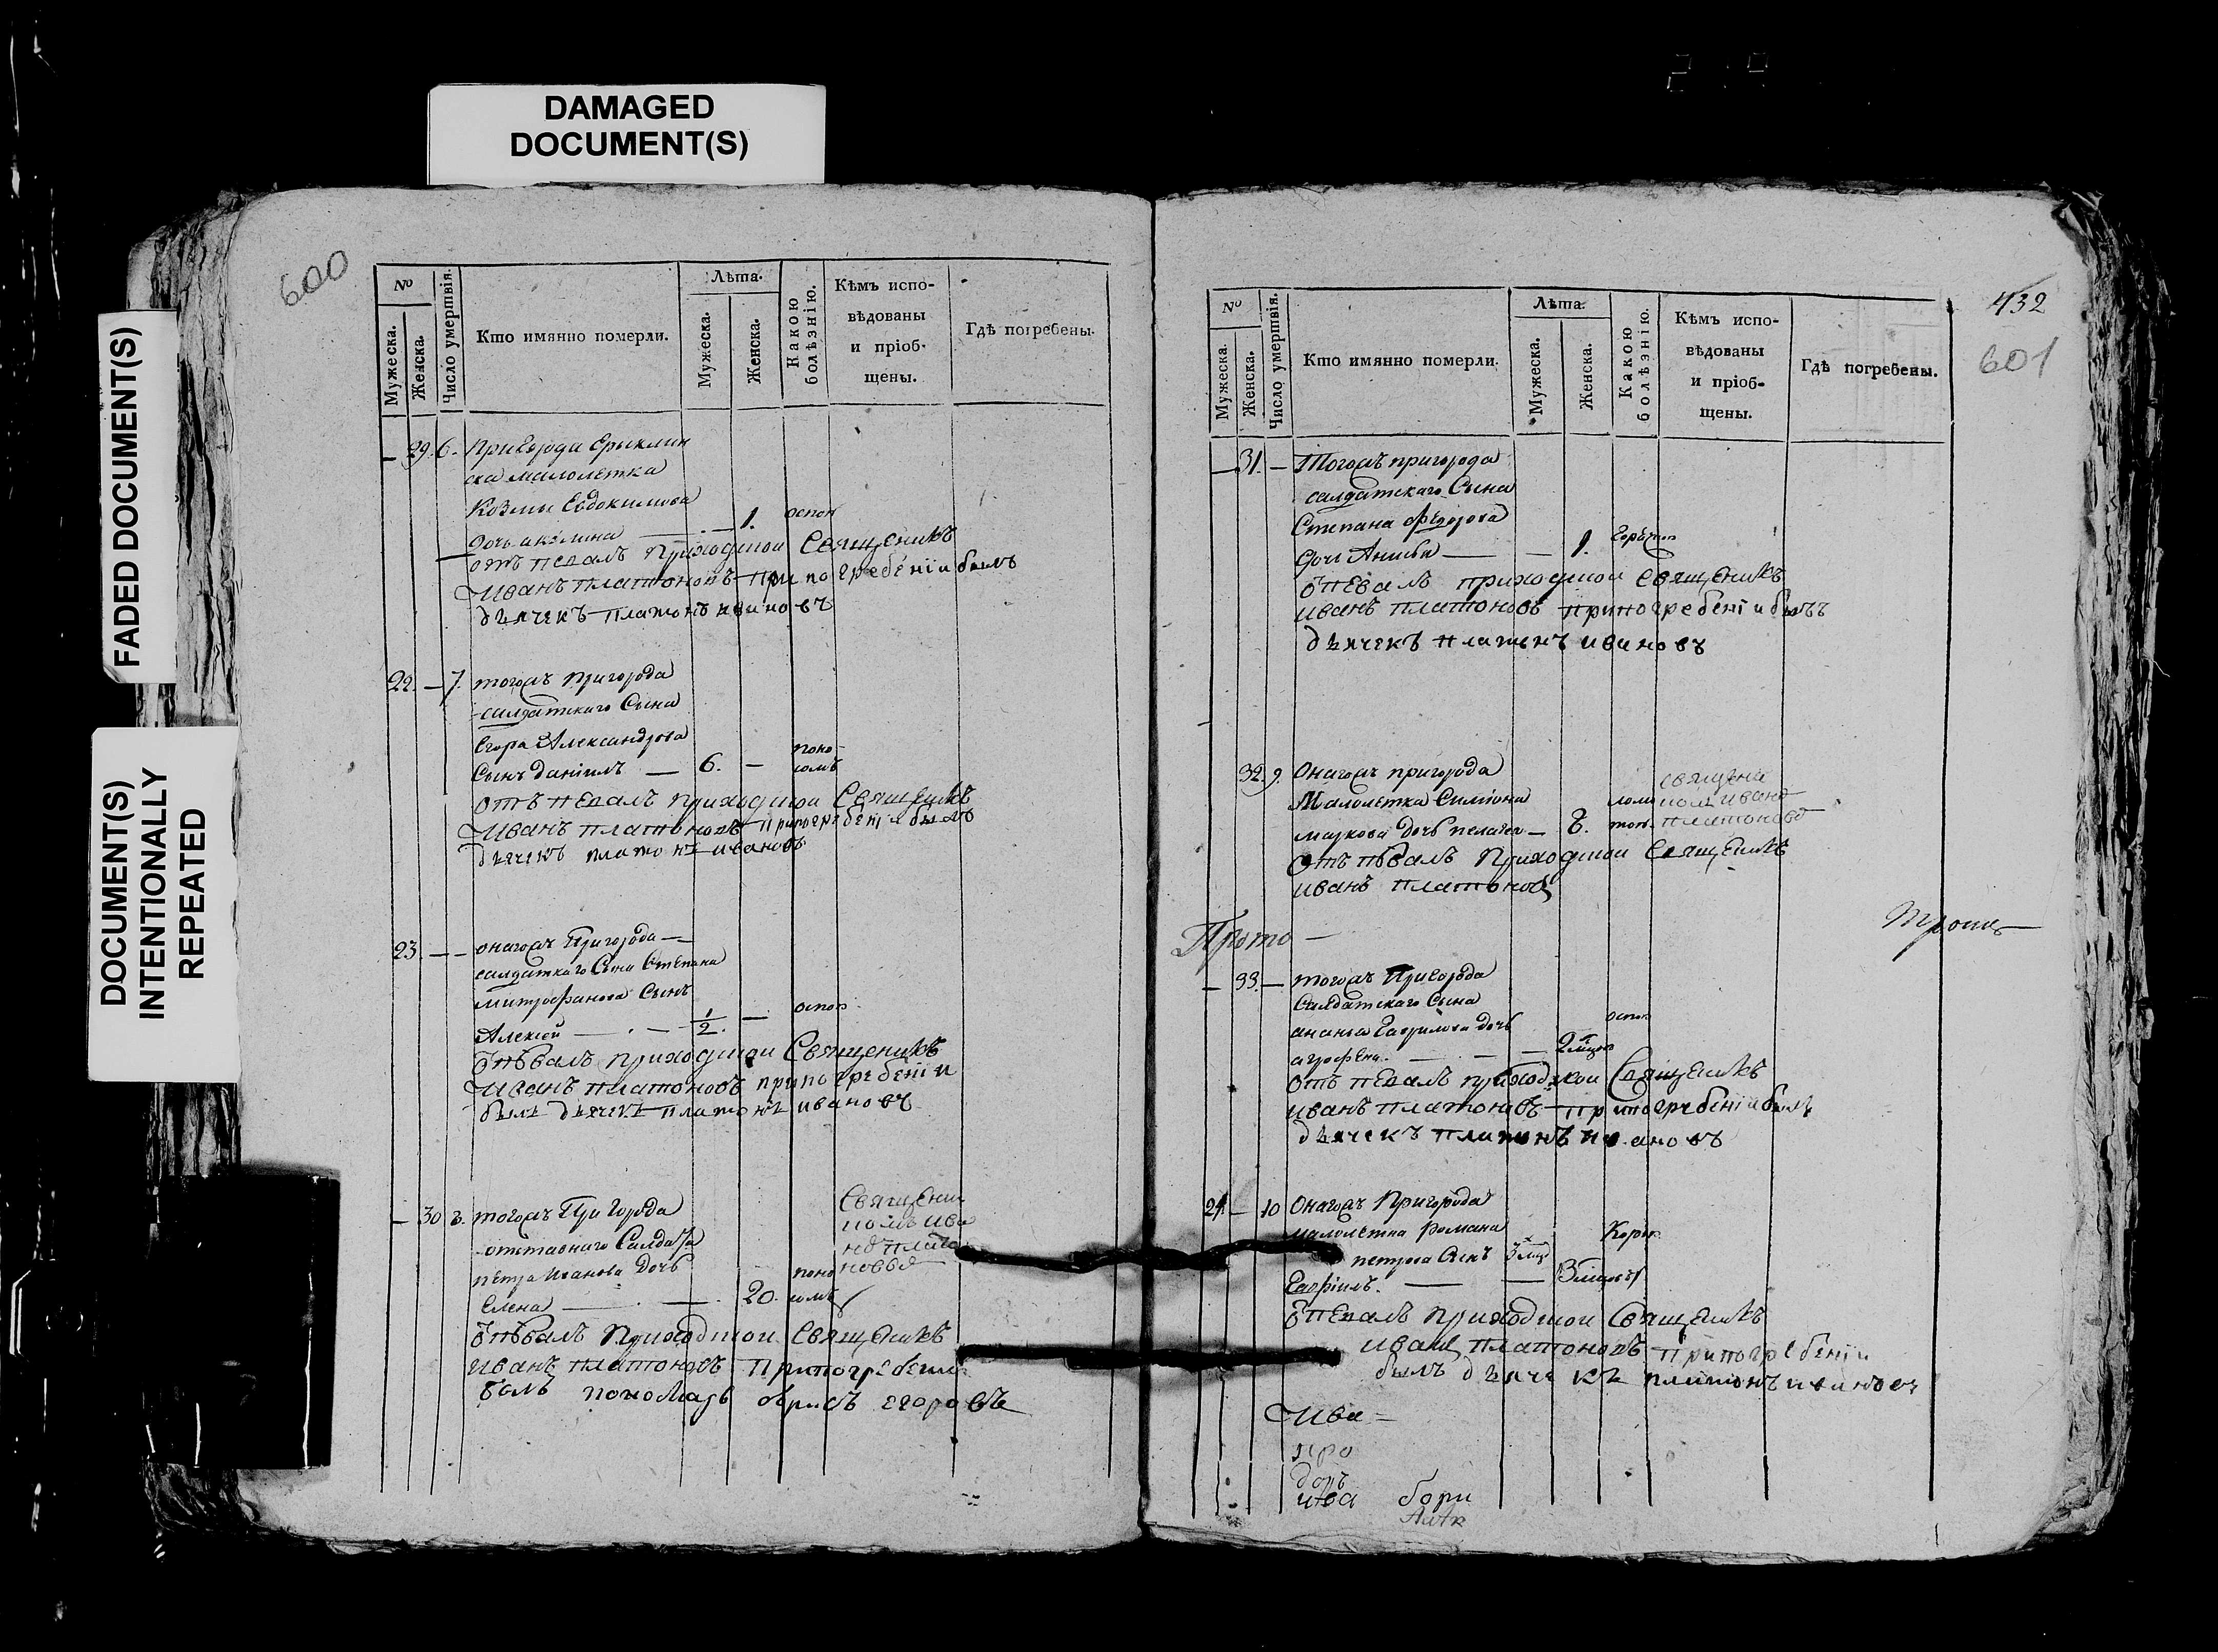 DAMAGED
DOCUMENT(S)
FADED DOCUMENT(S)
DOCUMENT(S)
INTENTIONALLY
REPEATED
600
№
Мужеска.
Женска.
Число умертвія.
Кто имянно померли.
Лѣта.
Мужеска.
Женска.
Какою
болѣзнію.
Кѣмъ испо-
вѣдованы
и пріоб-
щены.
Гдѣ погребены.
— 29. 6. Пригорода Ерыклин
ска малолетка
Козмы Евдокимова
дочь акилина — — 1. оспой
отъ певалъ приходской Священикъ
Иванъ платоновъ при погребеніи былъ
дьячекъ платонъ ивановъ
22. — 7. тогожъ пригорода
салдатскаго Сына
Егора Александрова
Сынъ даніилъ — 6. — поно
сомъ
отъ певалъ приходской Священикъ
Иванъ платоновъ при погребеніи былъ
дьячекъ платонъ ивановъ
23. — — онагожъ Пригорода —
салдатскаго Сына Степана
митрофанова Сынъ
Алексей — — 1/2. — оспой
отпѣвалъ приходской Священикъ
Иванъ платоновъ при погребеніи
былъ дьячекъ платонъ ивановъ
— 30 8. тогожъ Пригорода
отставнаго Салдата
петра Иванова дочь
Елена — — 20. поно
сомъ
Священи
комъ ива
номъ плато
новымъ
отпѣвалъ Приходской Священикъ
иванъ платоновъ при погребении
былъ пономарь борисъ егоровъ
432
601
№
Мужеска.
Женска.
Число умертвія.
Кто имянно померли.
Лѣта.
Мужеска.
Женска.
Какою
болѣзнію.
Кѣмъ испо-
вѣдованы
и пріоб-
щены.
Гдѣ погребены.
— 31. — Тогожъ пригорода
салдатскаго Сына
Степана федорова
дочь — — 1.
отпевалъ приходской Священикъ
иванъ платоновъ при погребеніи былъ
дьячекъ платонъ ивановъ
32. 9. Онагожъ пригорода
Малолетка Симиона
маркова дочь пелагея — 8. ломо
той.
священи
комъ ивано
платоново
отъ пѣвалъ Приходской Священикъ
иванъ платоновъ
Прото —
— 33. — тогожъ Пригорода
Салдатскаго Сына
ананьи Гаврилова дочь
агрофена. — — 2 оспой
отъ певалъ приходской Священикъ
иванъ платоновъ при погребеніи былъ
дьячекъ платонъ ивановъ
24. — 10 Онагожъ Пригорода
малолетка романа
петрова Сынъ 3
Гавріилъ. — —
отпевалъ Приходской Священикъ
иванъ платоновъ при погребеніи
былъ дьячекъ платонъ ивановъ
Ива =
донъ
ива бори